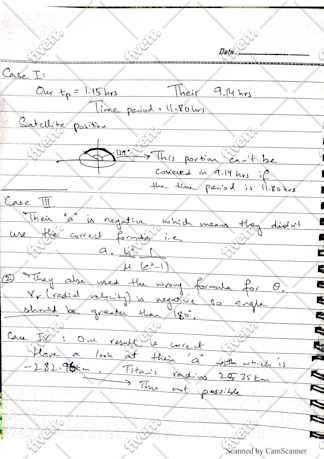 Date:
Case I:
Our tp = 1.15 hrs Their 9.14 hrs
Time period = 11.80 hrs
Satellite position
129° → This portion can't be
covered in 9.14 hrs if
the time period is 11.80 hrs
Case III
Their "a" is negative which means they didn't
use the correct formula i.e,
a = h² 1
μ (e²-1)
② They also used the wrong formula for θ.
Vr (radial velocity) is negative so angle
should be greater than 180°.
Case IV: Our result is correct
Have a look at their "a" with which is
-282.96 km. Titan's radius 2575 km
→ This not possible
Scanned by CamScanner
fiverr